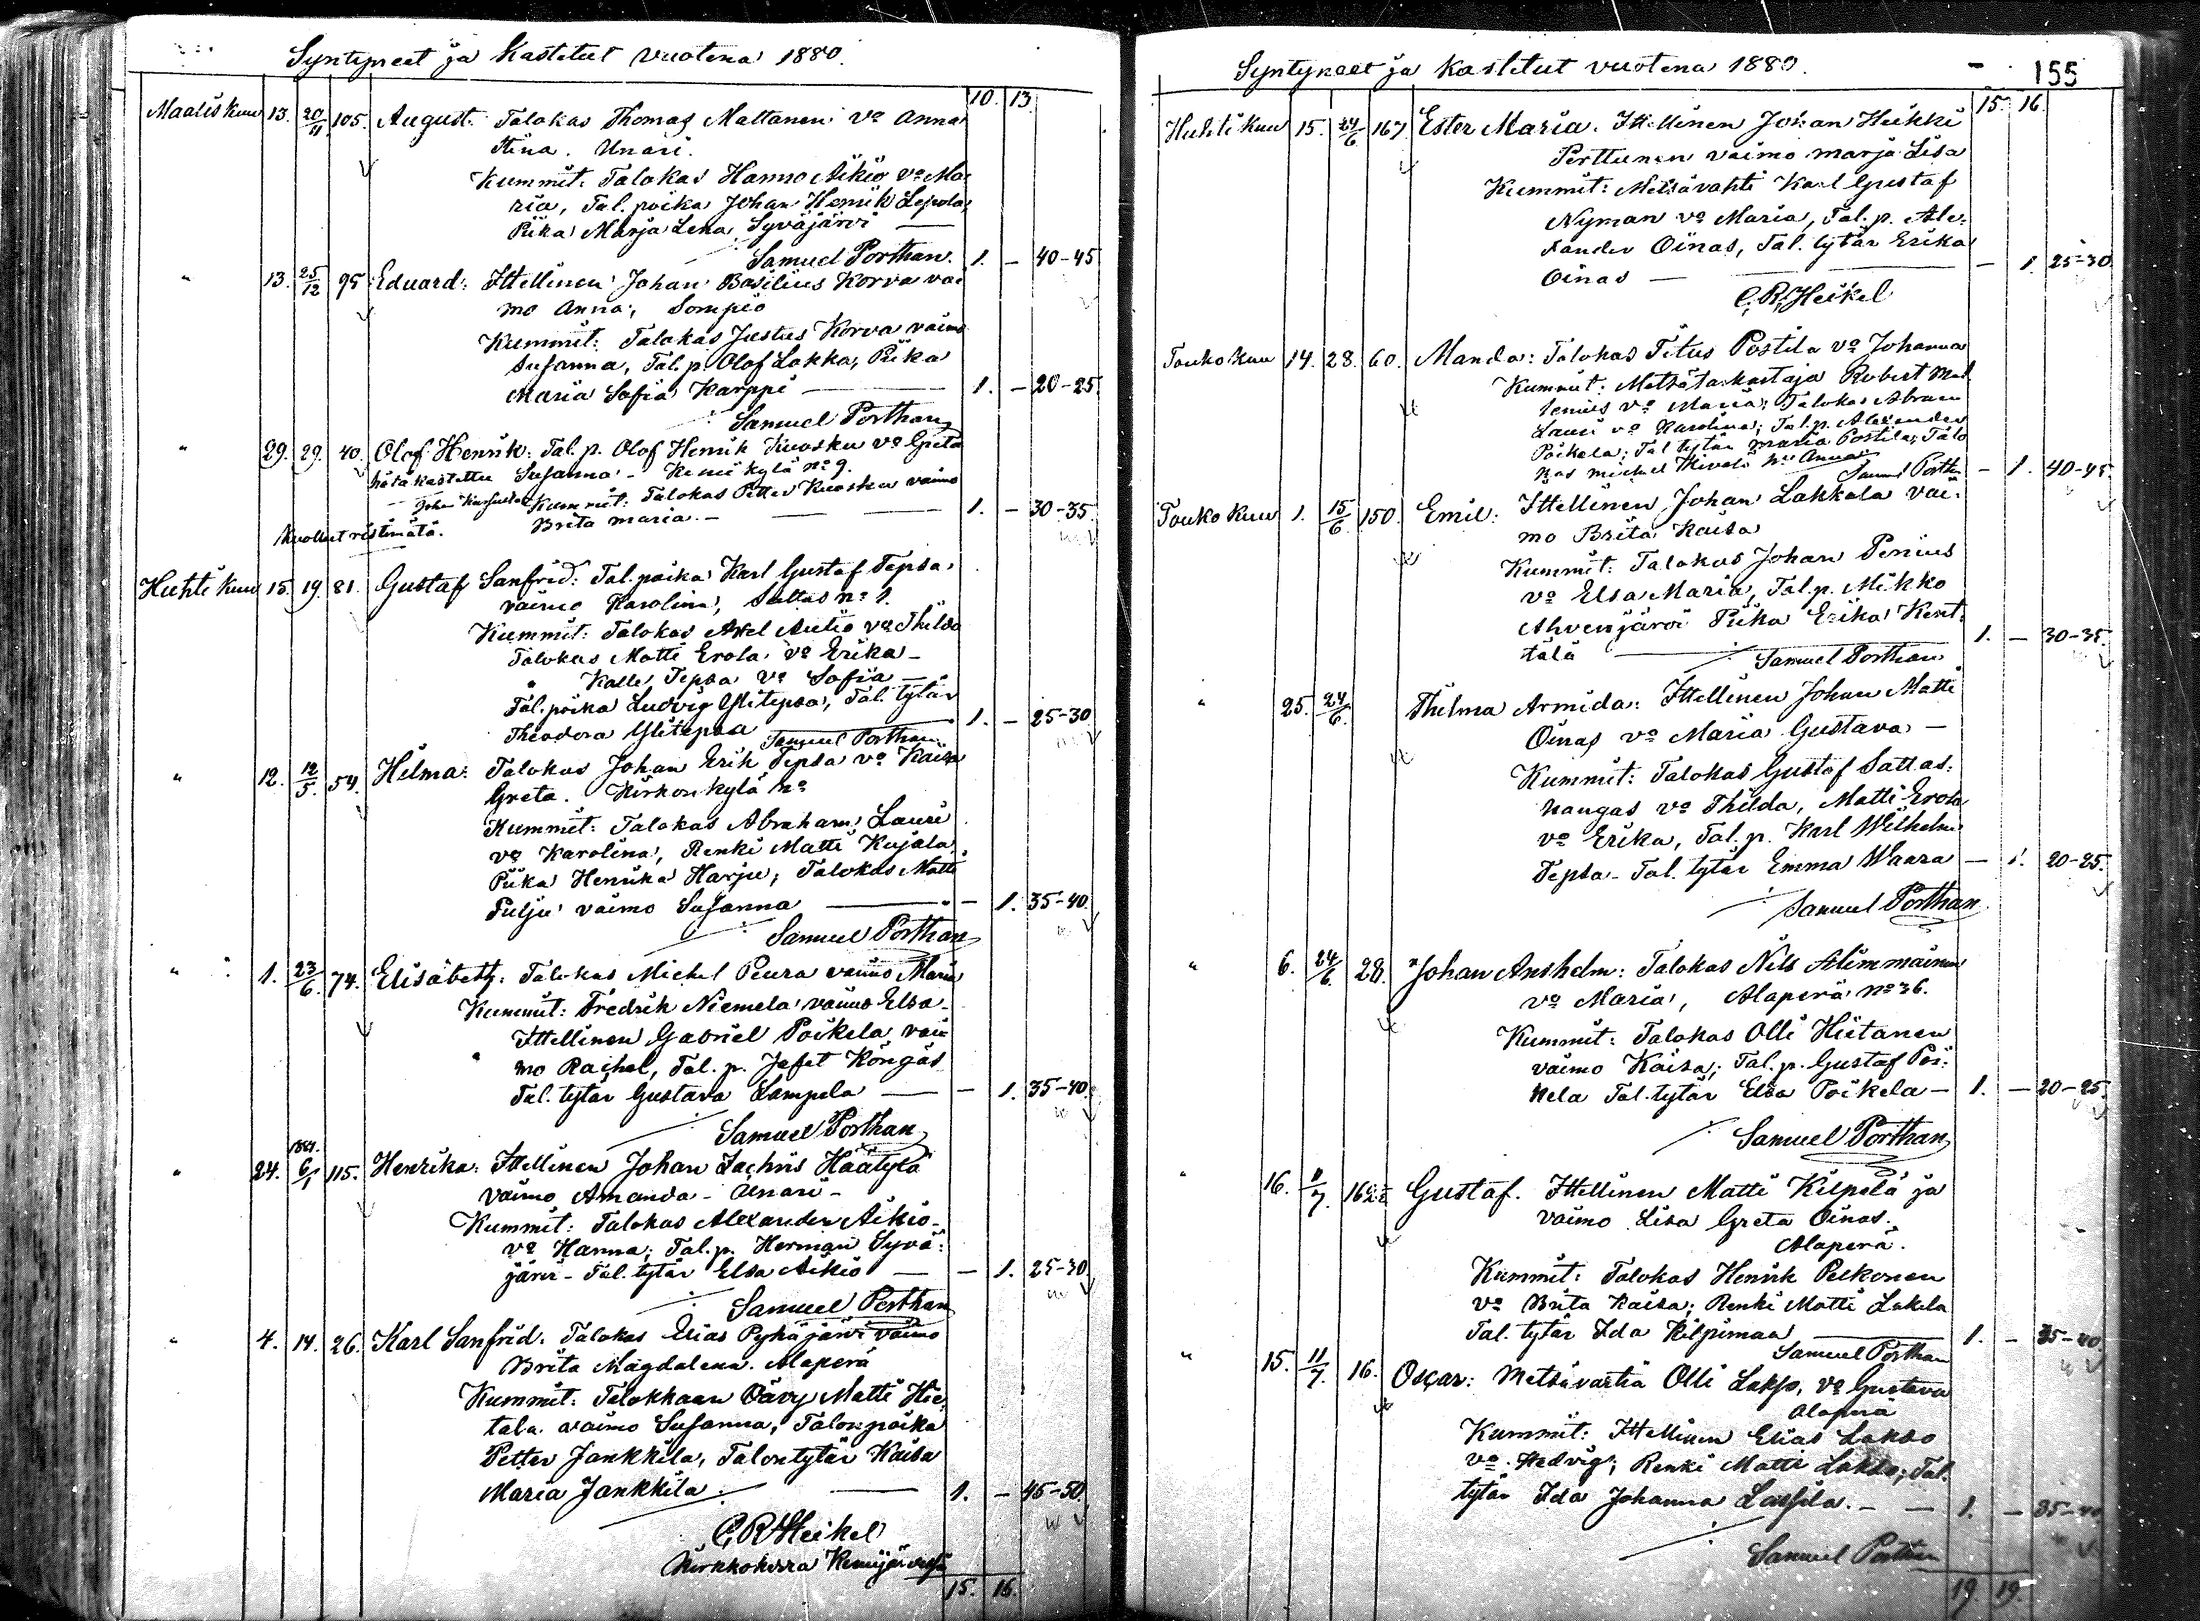 Syntyneet ja Kastetut vuotena 1880.
10. 13.
Maaliskuu 13. 20/11 105. August: Talokas Thomas Mattanen vo Anna
Stina. Unari.
Kummit: Talokas Hanno Aikio vo Ma-
ria, Tal. poika Johan Henrik Lepola,
Piika Marja Lena Syväjärvi
Samuel Porthan. 1. — 40-45
" 13. 25/12 95 Eduard: Ittellinen Johan Basilius Korva vai
mo Anna; Sompio
Kummit: Talokas Justus Korva vaimo
Susanna, Tal. p. Olof Lakka, Piika
Maria Sofia Karppi — 1. — 20-25.
Samuel Porthan
" 29. 29. 40. Olof Henrik: Tal. p. Olof Henrik Kuosku vo Greta
hätäkastettu Susanna - Kemikylä no 9.
Johan
Kummit: Talokas Petter Kuosku vaimo
Brita Maria. — 1. — 30-35.
Kuollut ristimätä.
Huhtikuu 15. 19. 81. Gustaf Sanfrid: Tal. poika Karl Gustaf Tepsa,
vaimo Karolina, Sattas no 1.
Kummit: Talokas Axel Autio vo Thilda
Talokas Matti Erola vo Erika —
" Kalle Tepsa vo Sofia —
Tal. poika Ludvig Ylitepsa, Tal. tytär
Theodora Ylitepsa 1. — 25-30
Samuel Porthan
" 12. 12/5. 54. Hilma: Talokas Johan Erik Tepsa vo Kaisa
Greta. Kirkonkylä no
Kummit: Talokas Abraham Lauri
vo Karolina, Renki Matti Kujala,
Piika Henrika Harju, Talokas Matti
Pulju vaimo Susanna — 1. 35-40.
Samuel Porthan
" 1. 23/6. 74. Elisabeth: Talokas Michel Peura vaimo Maria
Kummit: Fredrik Niemela vaimo Elsa -
Ittellinen Gabriel Poikela vai
mo Rachel, Tal. p. Jafet Köngäs
Tal. tytär Gustava Lampela — 1. 35-40.
Samuel Porthan
1881.
" 24. 6/1 115. Henrika: Ittellinen Johan Zachris Häätylä
vaimo Amanda - Unari -
Kummit: Talokas Alexander Aikio -
vo Hanna; Tal. p. Herman Syvä-
järvi - Tal. tytär Elsa Aikio — 1. 25-30
Samuel Porthan
" 4. 14. 26. Karl Sanfrid: Talokas Elias Pyhäjärvi vaimo
Brita Magdalena. Alaperä
Kummit: Talokkaan Vävy Matti Hie-
tala vaimo Susanna, Talonpoika
Petter Jankkila, Talontytär Kaisa
Maria Jankkila. — 1. — 45-50.
C. R. Heikel
Kirkkoherra Kemijärvessä
15. 16.
Syntyneet ja kastetut vuotena 1880. 155
15. 16.
Huhtikuu 15. 24/6 167 Ester Maria. Ittellinen Johan Heikki
Perttunen vaimo Marja Lisa
Kummit: Metsävahti Karl Gustaf
Nyman vo Maria, Tal. p. Ale-
xander Oinas, Tal. tytär Erika
Oinas — 1. 25-30
C. R. Heikel
Toukokuu 14. 28. 60. Manda: Talokas Titus Postila vo Johanna
Kummit: Metsätarkastaja Robert
vo Maria; Talokas Abram
Lauri vo Karolina; Tal. p. Alexander
Poikela; Tal. tytär Maria Postila; Talo
kas Michel vo Anna
Samuel Porthan — 1. 40-45.
Toukokuu 1. 15/6. 150. Emil: Ittellinen Johan Lakkala vai-
mo Brita Kaisa
Kummit: Talokas Johan Penius
vo Elsa Maria, Tal. p. Mikko
Ahvenjärvi Piika Erika Kent-
tälä 1. — 30-35.
Samuel Porthan
" 25. 24/6. Thilma Armida: Ittellinen Johan Matti
Oinas vo Maria Gustava —
Kummit: Talokas Gustaf Sattas-
kangas vo Thilda, Matti Erola
vo Erika, Tal. p. Karl Wilhelm
Tepsa - Tal. tytär Emma Waara — 1. 20-25.
Samuel Porthan
" 6. 24/6. 28. Johan Anshelm: Talokas Nils Alimmainen
vo Maria, Alaperä no 36.
Kummit: Talokas Olli Hietanen
vaimo Kaisa; Tal. p. Gustaf Poi-
kela Tal. tytär Elsa Poikela — 1. — 20-25.
Samuel Porthan
" 16. 11/7. 162½ Gustaf. Ittellinen Matti Kilpelä ja
vaimo Lisa Greta Oinas.
Alaperä.
Kummit: Talokas Henrik Pelkonen
vo Brita Kaisa; Renki Matti Lakela
Tal. tytär Ida Kilpimaa 1. — 35-40
Samuel Porthan
" 15. 11/7. 16. Oscar: Metsävartia Olli Lakso, vo Gustava
Alaperä
Kummit: Ittellinen Elias Lakso
vo Hedvig; Renki Matti Lakso; Tal.
tytär Ida Johanna Lassila. — 1. — 35-40
Samuel Porthan
19. 19.